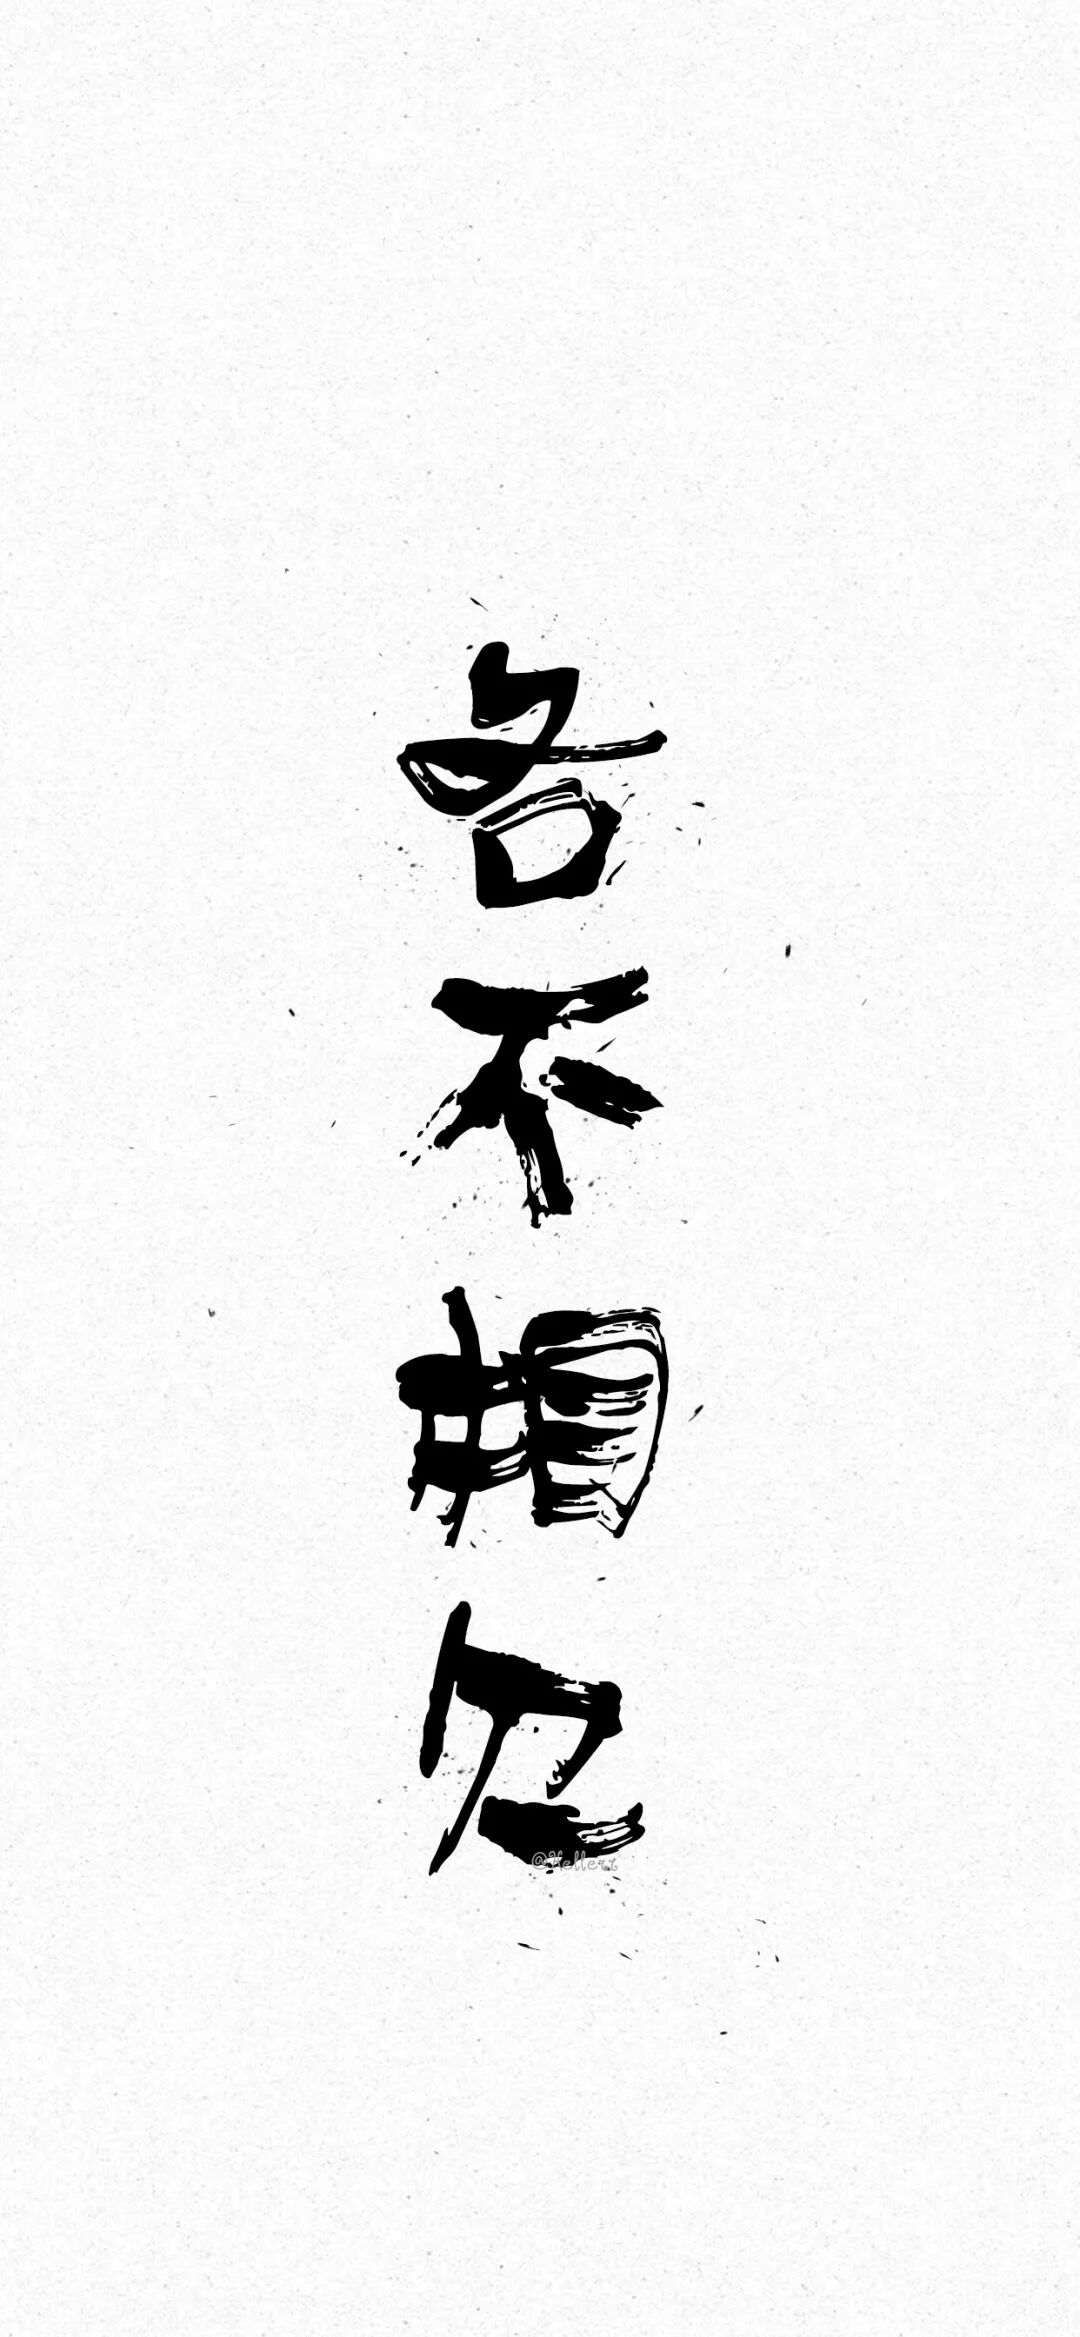 各不相欠
@Kellerz